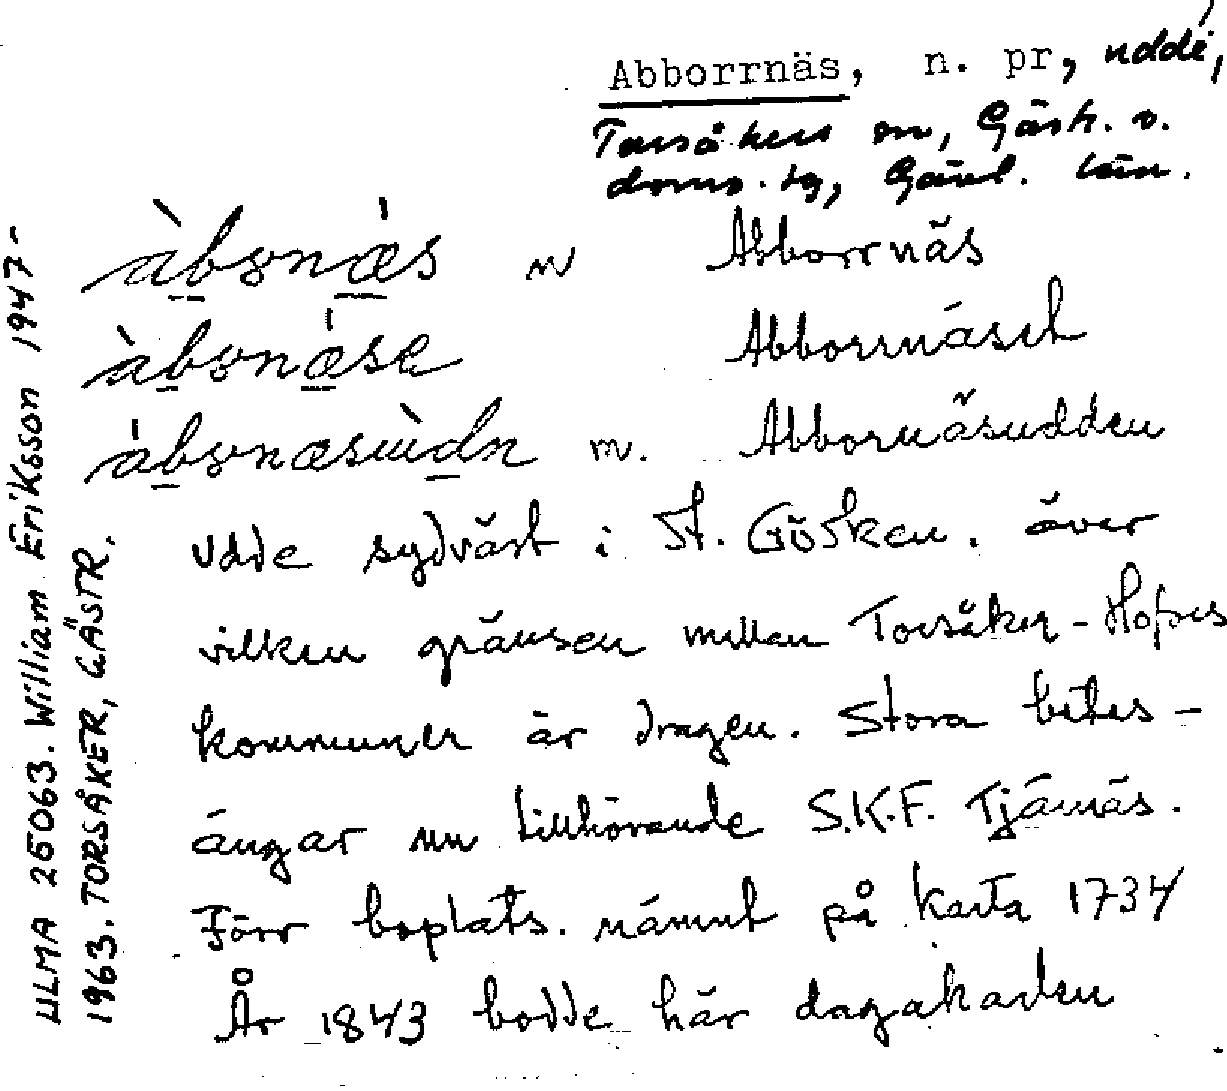 Abborrnäs, n. pr, udde,
Torsåkers sn, Gästr. ö.
doms. tg, Gävl. län.
àbornǽs n Abborrnäs
àbornǽse Abborrnäset
ábornæsùdn m. Abborrnäsudden
udde sydväst i St. Gösken. över
vilken gränsen mellan Torsåker - Hofors
kommuner är dragen. Stora betes-
ängar nu tillhörande S.K.F. Tjärnäs.
Förr boplats. nämnt på karta 1734
År 1843 bodde här dagakarlen
ULMA 25063. William Eriksson 1947-
1963. TORSÅKER, GÄSTR.